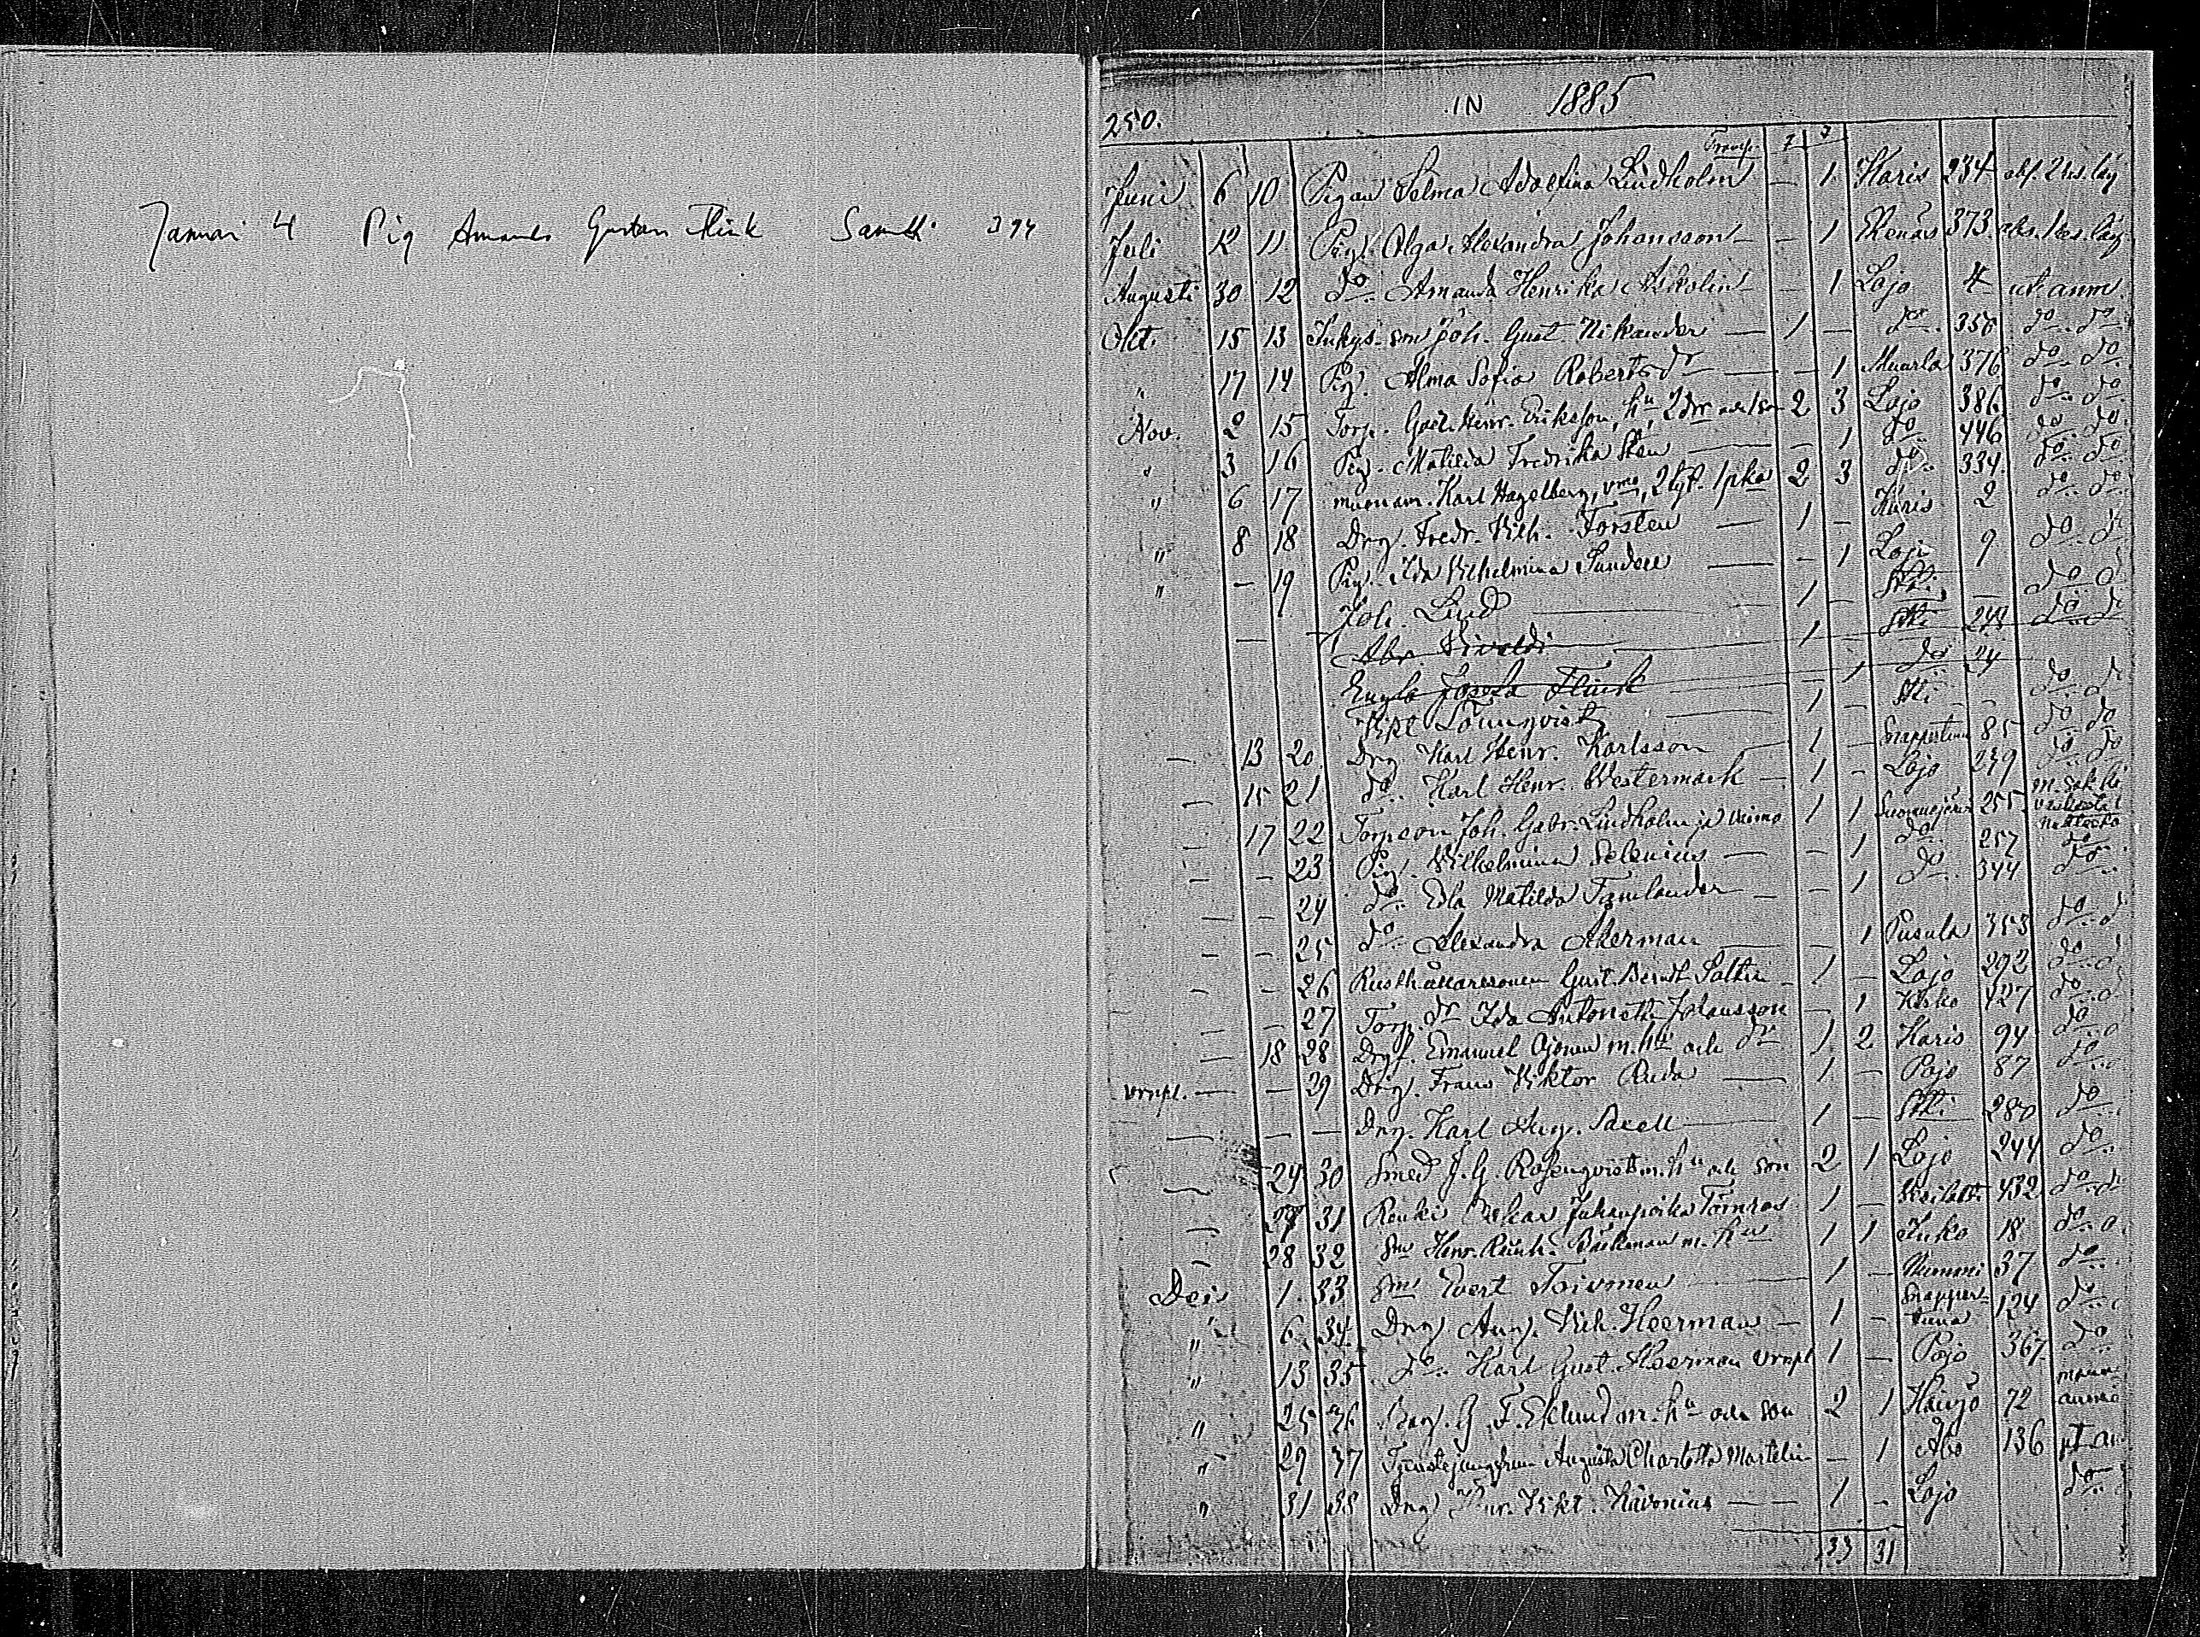 Januari 4 Pig Amanda Gustava Flink Samtti 394
250. IN 1885
Transp. 7 7
Juni 6 10 Pigan Selma Adolfina Lindholm — 1 Karis 234 abs. 2 ks. läg
Juli 12 11 Pig. Olga Alexandra Johansson — 1 Ekenäs 373 abs. 1 ks. läg
Augusti 30 12 do Amanda Henrika Askolin — 1 Lojo 4 ut. anm.
Okt. 15 13 Inhys. son Joh. Gust. Nikander 1 — do 358 do do
" 17 14 Pig. Alma Sofia Robertsdr — 1 Muurla 376 do do
Nov. 2 15 Torp. Gust. Henr. Eriksson, hu, 2 dr och 1 son 2 3 Lojo 386 do do
" 3 16 Pig. Matilda Fredrika Sten — 1 do 446 do do
" 6 17 muonam. Karl Hagelberg, vmo, 2 tyt. 1 pka 2 3 do 334 do do
" 8 18 Drg. Fredr. Vilh. Forstén 1 — Karis 2 do do
" — 19 Pig. Ida Vilhelmina Sundell — 1 Lojo 9 do do
Joh. Lind 1 — Stki — do do
— Abr. 1 Stki 244 do do
Engla Josefa Flink — 1 do 24
Vikt. Lönnqvist 1 — Stki — do do
— 13 20 Drg. Karl Henr. Karlsson 1 — Snappertuna 85 do do
— 15 21 do Karl Henr. Westermark 1 — Lojo 239 do do
— 17 22 Torp. son Joh. Gabr. Lindholm ja vaimo 1 1 Suomusjärvi 255
— — 23 Pig. Vilhelmina Selenius — 1 do 257 do
— — 24 do Edla Matilda Törnlander — 1 do 344 do
— — 25 do Alexandra Åkerman — 1 Pusula 353 do
— — 26 Rusthållaresonen Gust. Bernh. 1 — Lojo 292 do
— — 27 Torp. dr Ida Antonetta Johansson — 1 Kisko 427 do
— 18 28 Drg. Emanuel Ojonen m. hu och dr 1 2 Karis 94 do
vrnpl. — — 29 Drg. Frans Viktor Ruda 1 — Pojo 87 do
— — — Drg. Karl Aug. Saxell 1 — Stki 280 do
— 24 30 Smed J. G. Rosenqvist m. hu och son 2 1 Lojo 244 do
— 27 31 Renki Oskar Juhanpoika Törnroos 1 — 432 do
— 28 32 Sm Henr. Reinh. Bäckman m. hu 1 1 Inko 18 do
Dec 1 33 Sm Evert Toivonen 1 — Nummi 37 do
" 6 34 Drg. Aug. Vilh. Heerman 1 — Snappertuna 124 do
" 13 35 do Karl Gust. Heerman vrnpl 1 — Pojo 367 do
" 25 36 G. F. Eklund m. hu och son 2 1 72
" 29 37 Tjenstejungfrun Augusta Charlotta Martelin — 1 Åbo 136 ut. an
" 31 38 Drg. Henr. Vikt. Hävonius 1 — Lojo do
33 31